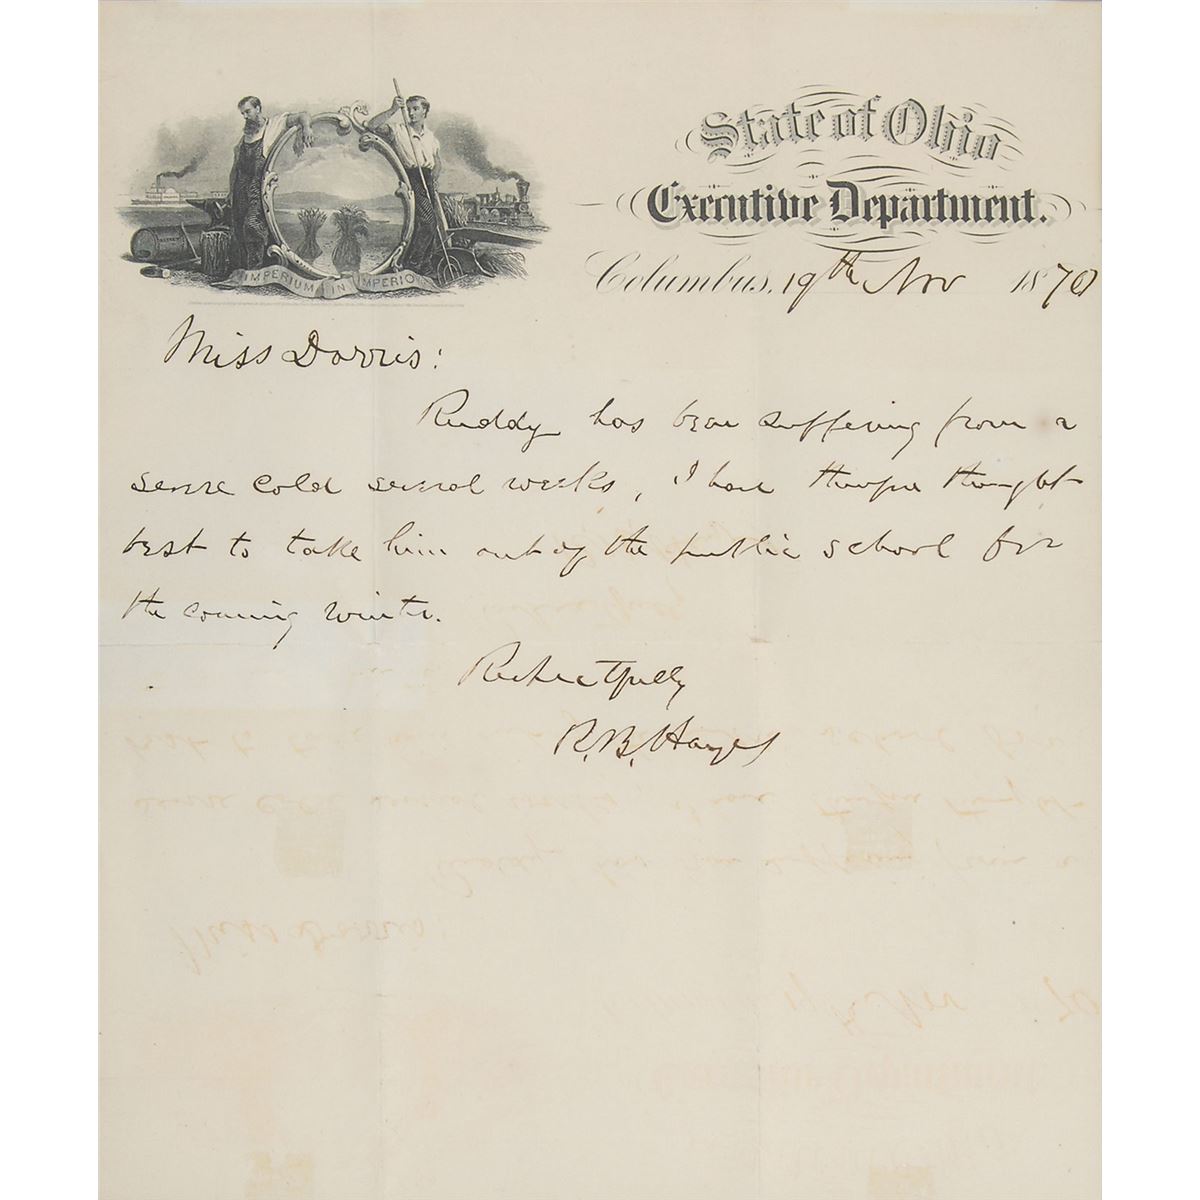 State of Ohio
Executive Department.
IMPERIUM IN IMPERIO
Columbus, 19th Nov 1870
Miss Dorris:
Ruddy has been suffering from a
severe cold several weeks, I have therefore thought
best to take him out of the public school for
the coming winter.
Respectfully
R. B. Hayes